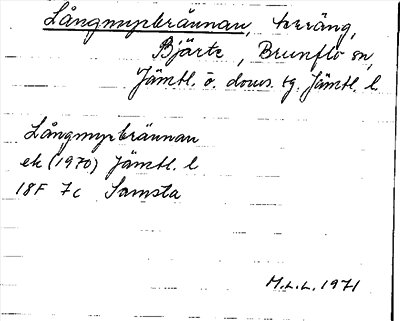 Långmyrbrännan, terräng,
Bjärte, Brunflo sn,
Jämtl. ö. doms. tg. Jämtl. l.
Långmyrbrännan
ek (1970) Jämtl. l
18F 7c Samsta
M.L.L. 1971